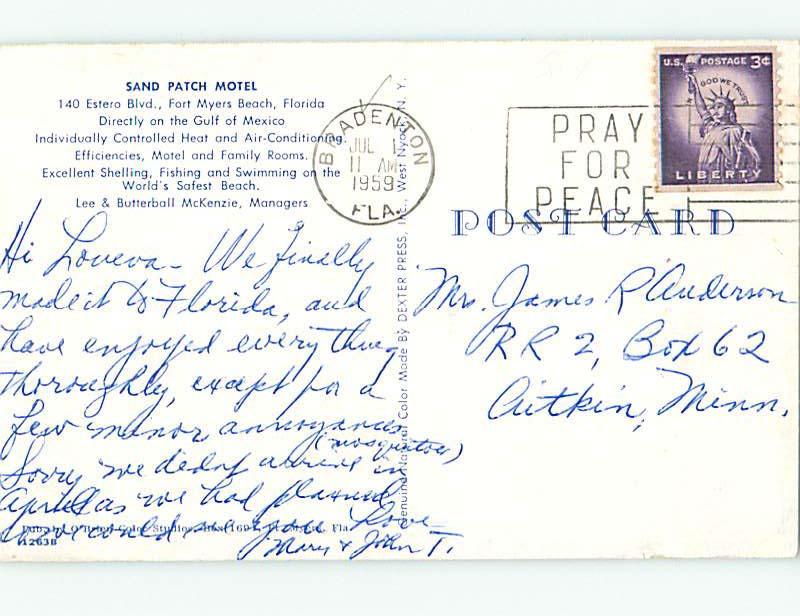 SAND PATCH MOTEL
140 Estero Blvd., Fort Myers Beach, Florida
Directly on the Gulf of Mexico
Individually Controlled Heat and Air-Conditioning.
Efficiencies, Motel and Family Rooms.
Excellent Shelling, Fishing and Swimming on the
World's Safest Beach.
Lee & Butterball McKenzie, Managers
Hi Loveva - We finally
made it to Florida, and
have enjoyed everything
thoroughly, except for a
few minor annoyances
(mosquitoes)
Sorry we didn't arrive in
April as we had planned
so we could see you Love -
Mary & John T.
12638
Genuine Natural Color Made By DEXTER PRESS, INC., West Nyack, N. Y.
BRADENTON
JUL 1
11 AM
1959
FLA.
PRAY
FOR
PEACE
U.S. POSTAGE 3¢
IN GOD WE TRUST
LIBERTY
POST CARD
Mrs. James R Anderson
RR 2, Box 62
Aitkin, Minn.